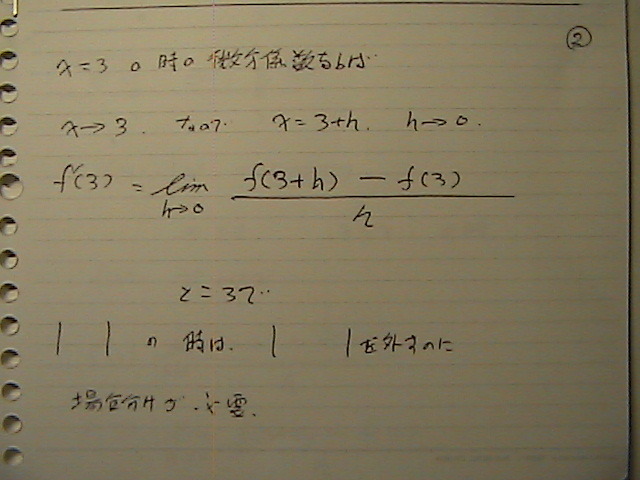 ②
x=3の時の微分係数ならば
x→3. なので. x=3+h. h→0.
f'(3) = lim h→0 f(3+h) - f(3) / h
| | の時は. | |を外すのに
場合分けが必要.